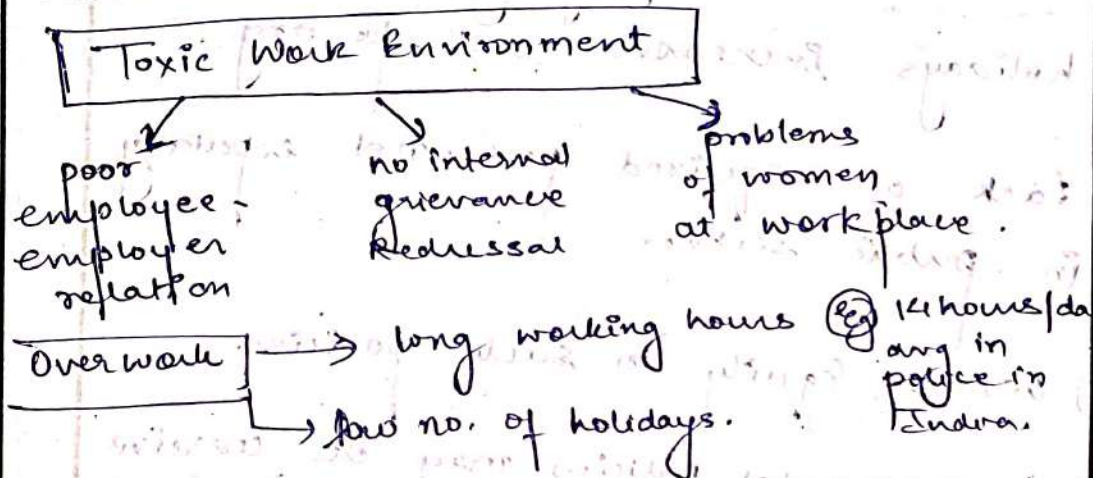 Toxic Work Environment
poor
employee-
employer
relation
no internal
grievance
Redressal
problems
of women
at workplace.
Overwork
long working hours
eg 14 hours/da
avg in
police in
India.
low no. of holidays.